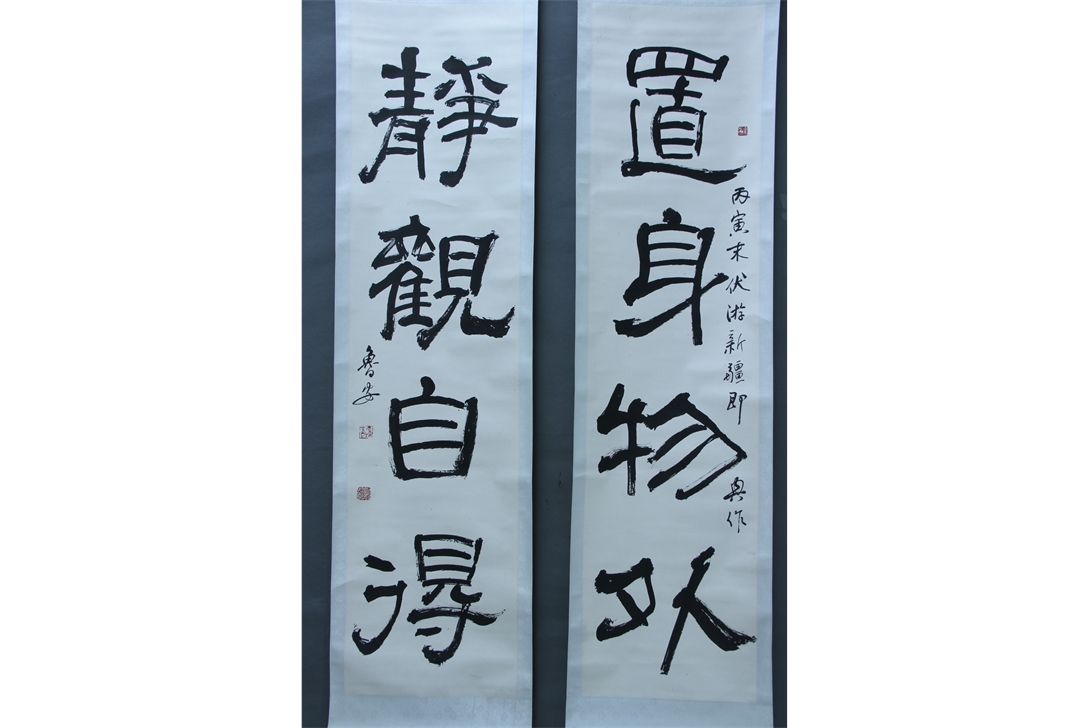 置身物外
丙寅末伏游新疆即兴作
靜觀自得
魯安